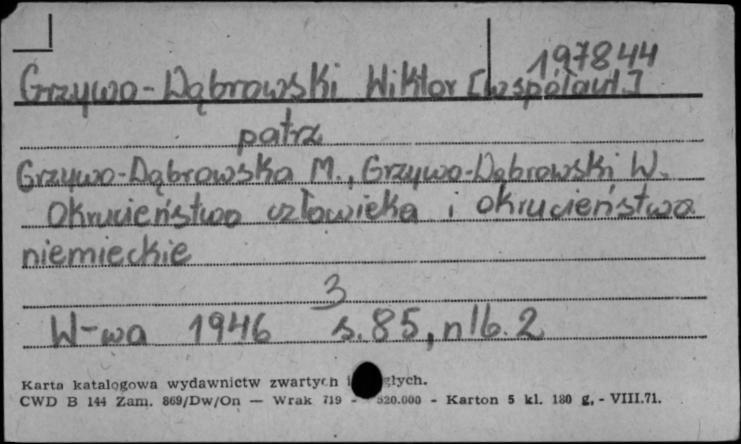 197844
Grzywo-Dąbrowski Wiktor [współaut.]
patrz
Grzywo-Dąbrowska M., Grzywo-Dąbrowski W.
Okrucieństwo człowieka i okrucieństwa
niemieckie
3
W-wa 1946 s. 85, nlb. 2
Karta katalogowa wydawnictw zwartych i głych.
CWD B 144 Zam. 869/Dw/On — Wrak 719 - 520.000 - Karton 5 kl. 180 g. - VIII.71.